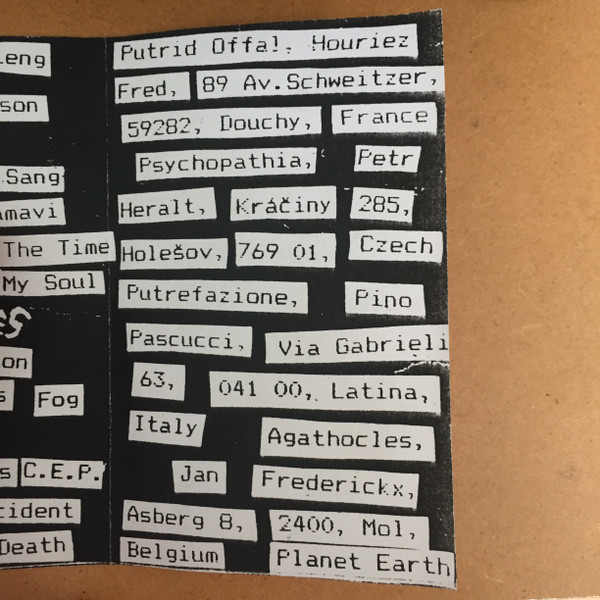 eng
son
Sang
mavi
The Time
My Soul
on
s Fog
s C.E.P.
cident
Death
Putrid Offal, Houriez
Fred, 89 Av.Schweitzer,
59282, Douchy, France
Psychopathia, Petr
Heralt, Kráčiny 285,
Holešov, 769 01, Czech
Putrefazione, Pino
Pascucci, Via Gabrieli
63, 041 00, Latina,
Italy Agathocles,
Jan Frederickx,
Asberg 8, 2400, Mol,
Belgium Planet Earth